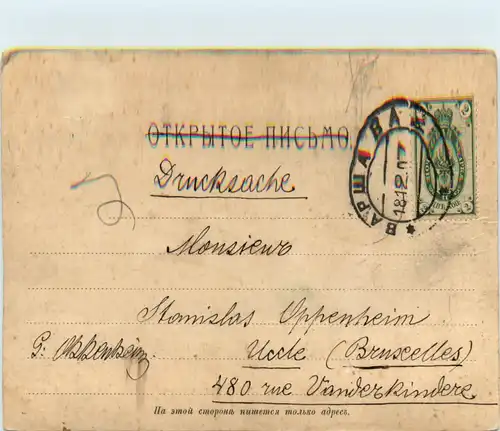 ОТКРЫТОЕ ПИСЬМО
Drucksache
ВАРШАВА
18 12
2
Monsieur
Stanislas Oppenheim
Uccle (Bruxelles)
480 rue Vanderkindere
На этой сторонѣ пишется только адресъ.